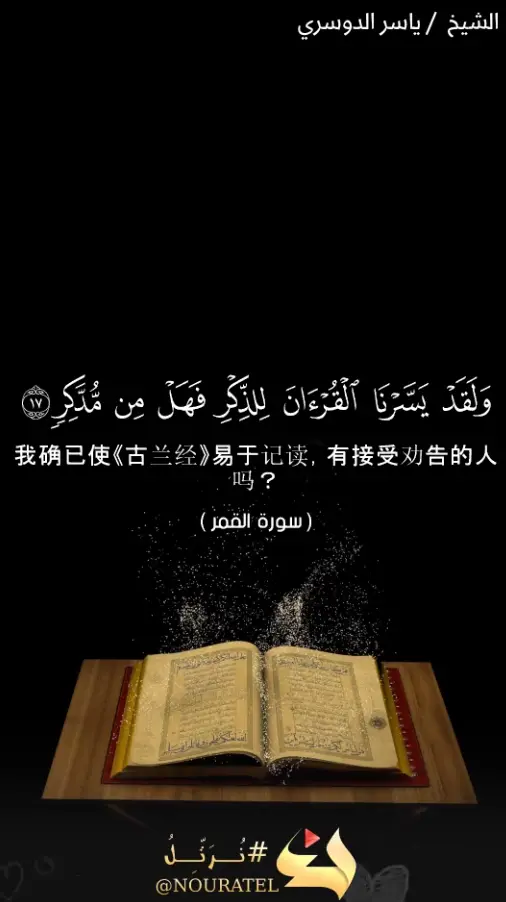 الشيخ / ياسر الدوسري
وَلَقَدْ يَسَّرْنَا ٱلْقُرْءَانَ لِلذِّكْرِ فَهَلْ مِن مُّدَّكِرٍ ١٧
我确已使《古兰经》易于记读，有接受劝告的人
吗？
( سورة القمر )
#نُرَتِّلُ
@NOURATEL